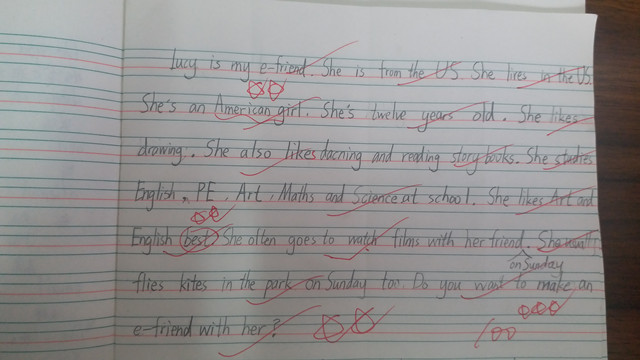 Lucy is my e-friend. She is from the US. She lives in the US.
She's an American girl. She's twelve years old. She likes
drawing. She also likes dacning and reading story books. She studies
English, PE, Art, Maths and Science at school. She likes Art and
English best. She often goes to watch films with her friend. She
on Sunday
flies kites in the park on Sunday too. Do you want to make an
e-friend with her?
100